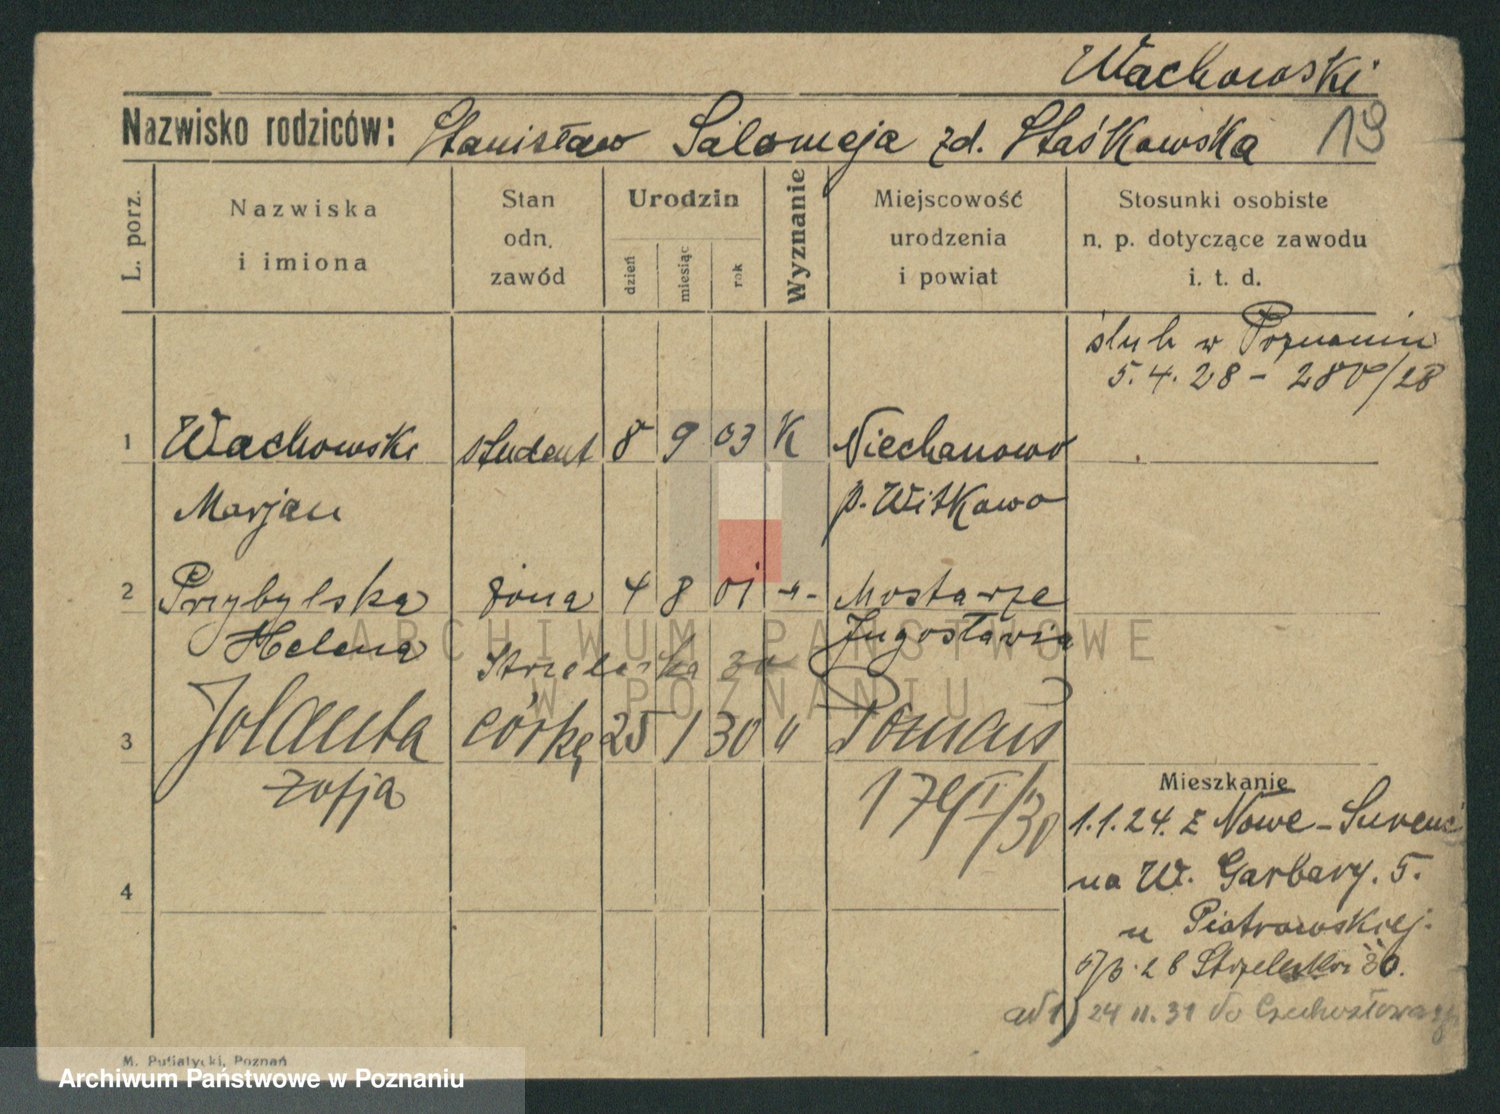 Wachowski
Nazwisko rodziców: Stanisław Salomeja zd. Staśkowska 19
L. porz.
Nazwiska
i imiona
Stan
odn.
zawód
Urodzin
dzień
miesiąc
rok
Wyznanie
Miejscowość
urodzenia
i powiat
Stosunki osobiste
n. p. dotyczące zawodu
i. t. d.
ślub w Poznaniu
5.4.28 - 280/28
1 Wachowski student 8 9 03 K Niechanowo
Marjan p. Witkowo
2 Przybylska żona 4 8 01 -"- Mostarze
Helena Jugosławia
Strzelecka 30
3 Jolanta córka 25 1 30 " Poznań
Zofja 179/I/30
Mieszkanie
1.1.24. z Nowe-
na W. Garbary. 5.
u Piotrowskiej.
28 30.
4
ad 1) 24 II. 31 do Czechosłowacji
M. Putiatycki, Poznań
ARCHIWUM PAŃSTWOWE
W POZNANIU
Archiwum Państwowe w Poznaniu